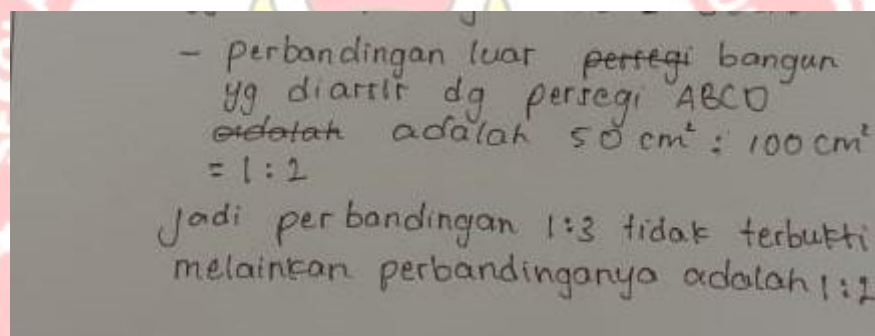 - perbandingan luar persegi bangun
yg diarsir dg persegi ABCD
adalah adalah 50 cm² : 100 cm²
= 1 : 2
Jadi perbandingan 1:3 tidak terbukti
melainkan perbandinganya adalah 1:2